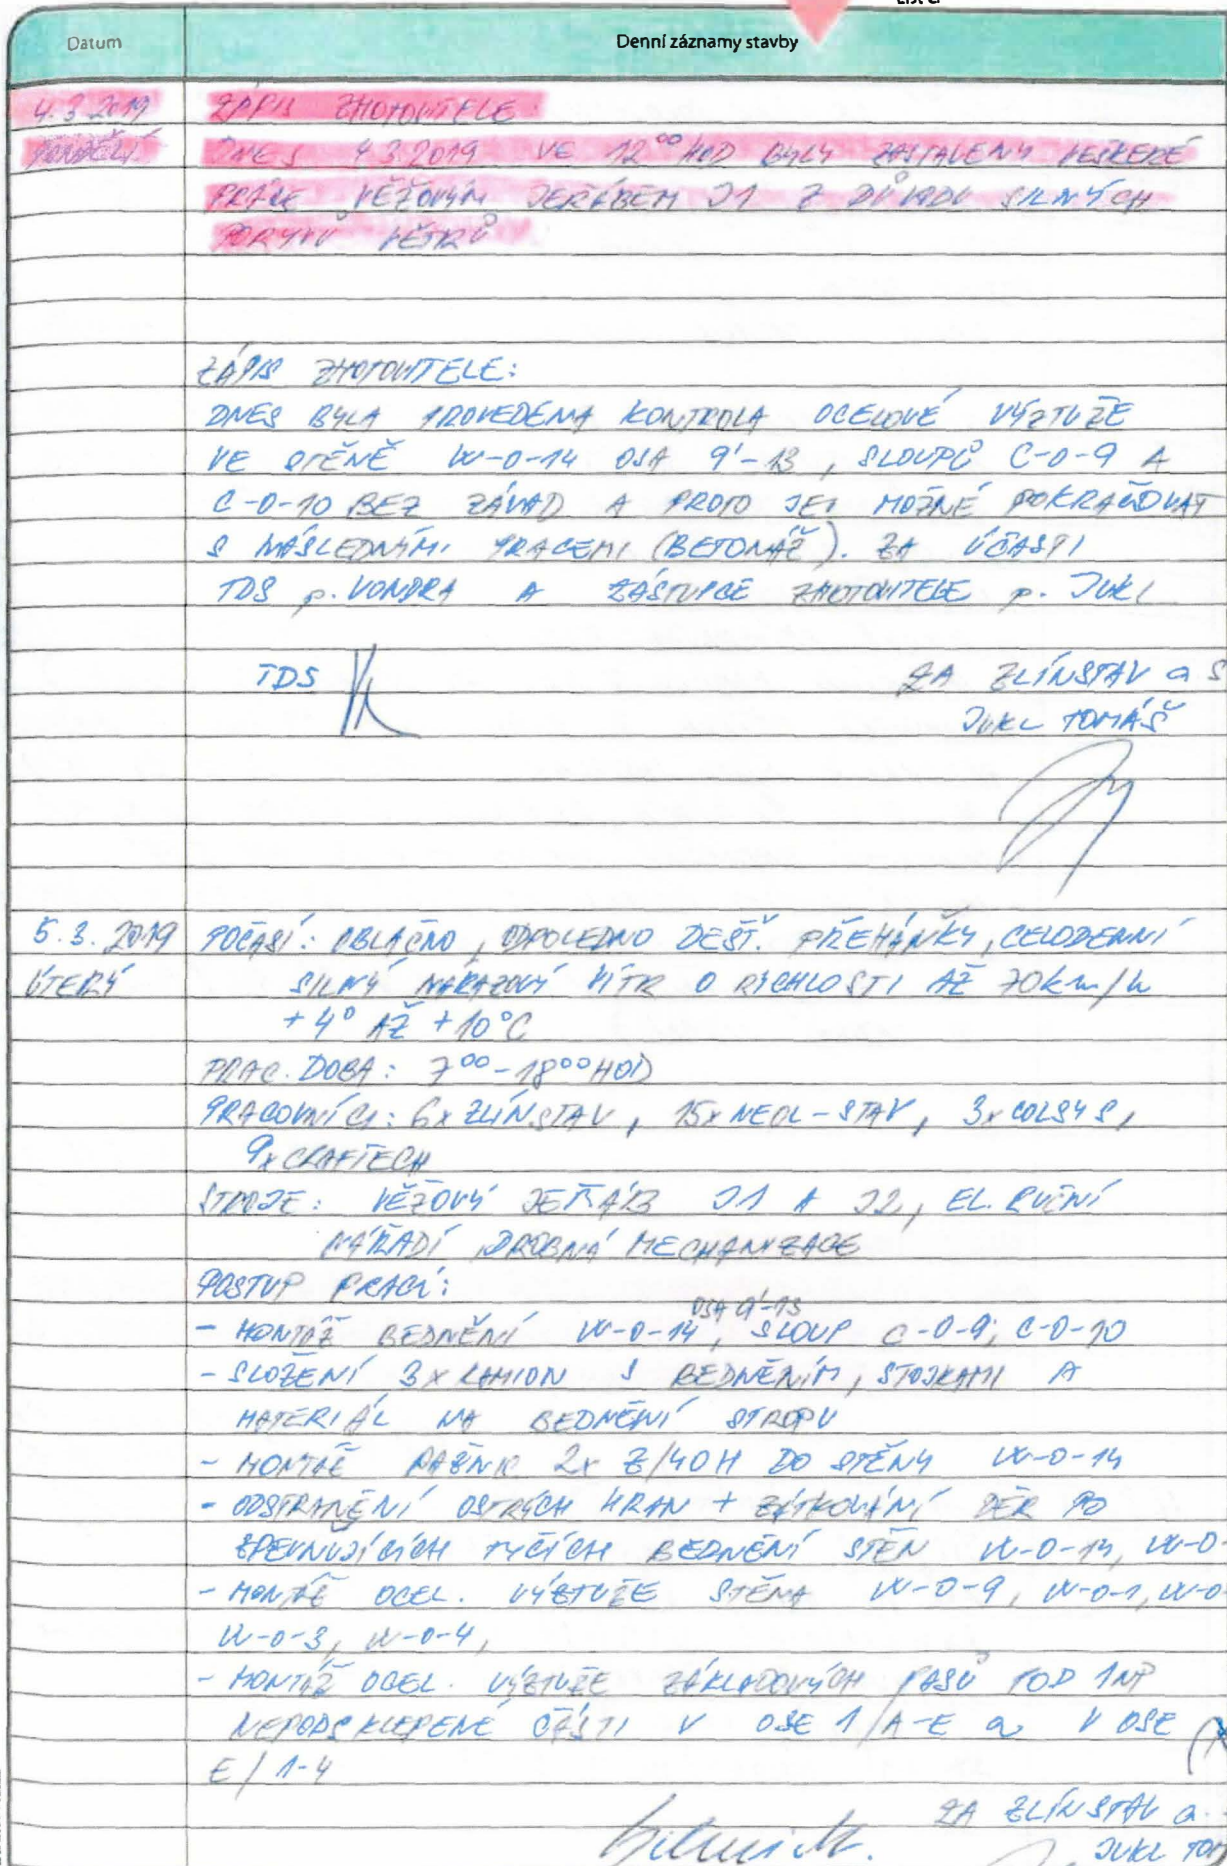 Datum
Denní záznamy stavby
4.3.2019 ZÁPIS ZHOTOVITELE:
PONDĚLÍ DNES 4.3.2019 VE 12⁰⁰ HOD BYLY ZASTAVENY VEŠKERÉ
PRÁCE VĚŽOVÝM JEŘÁBEM J1 Z DŮVODU SILNÝCH
PORYVŮ VĚTRŮ
ZÁPIS ZHOTOVITELE:
DNES BYLA PROVEDENA KONTROLA OCELOVÉ VÝZTUŽE
VE STĚNĚ W-0-14 OSA 9'-13, SLOUPŮ C-0-9 A
C-0-10 BEZ ZÁVAD A PROTO JE MOŽNÉ POKRAČOVAT
S NÁSLEDNÝMI PRACEMI (BETONÁŽ). ZA ÚČASTI
TDS p. VONDRA A ZÁSTUPCE ZHOTOVITELE p. JUKL
TDS
ZA ZLÍNSTAV a s
JUKL TOMÁŠ
5.3.2019 POČASÍ: OBLAČNO, ODPOLEDNO DEŠŤ. PŘEHÁŇKY, CELODENNÍ
ÚTERÝ SILNÝ NÁRAZOVÝ VÍTR O RYCHLOSTI AŽ 70km/h
+4° AŽ +10°C
PRAC. DOBA: 7⁰⁰-18⁰⁰ HOD
PRACOVNÍCI: 6x ZLÍNSTAV, 15x NEOL-STAV, 3x COLSYS,
9x CRAFTECH
STROJE: VĚŽOVÝ JEŘÁB J1 A J2, EL. RUČNÍ
NÁŘADÍ DROBNÁ MECHANIZACE
POSTUP PRACÍ:
- MONTÁŽ BEDNĚNÍ W-0-14 OSA 9'-13, SLOUP C-0-9, C-0-10
- SLOŽENÍ 3x KAMION S BEDNĚNÍM, STOJKAMI A
MATERIÁL NA BEDNĚNÍ STROPU
- MONTÁŽ 2x Z/40H DO STĚNY W-0-14
- ODSTRANĚNÍ OSTRÝCH HRAN + ZÁTKOVÁNÍ DĚR PO
SPEVNUJÍCÍCH TYČÍCH BEDNĚNÍ STĚN W-0-14, W-0-
- MONTÁŽ OCEL. VÝZTUŽE STĚNA W-0-9, W-0-1, W-0
W-0-3, W-0-4,
- MONTÁŽ OCEL. VÝZTUŽE ZÁKLADOVÝCH PASŮ POD 1NP
NEPODSKLEPENÉ ČÁSTI V OSE 1/A-E a V OSE
E/1-4
ZA ZLÍNSTAV a.
JUKL TOM